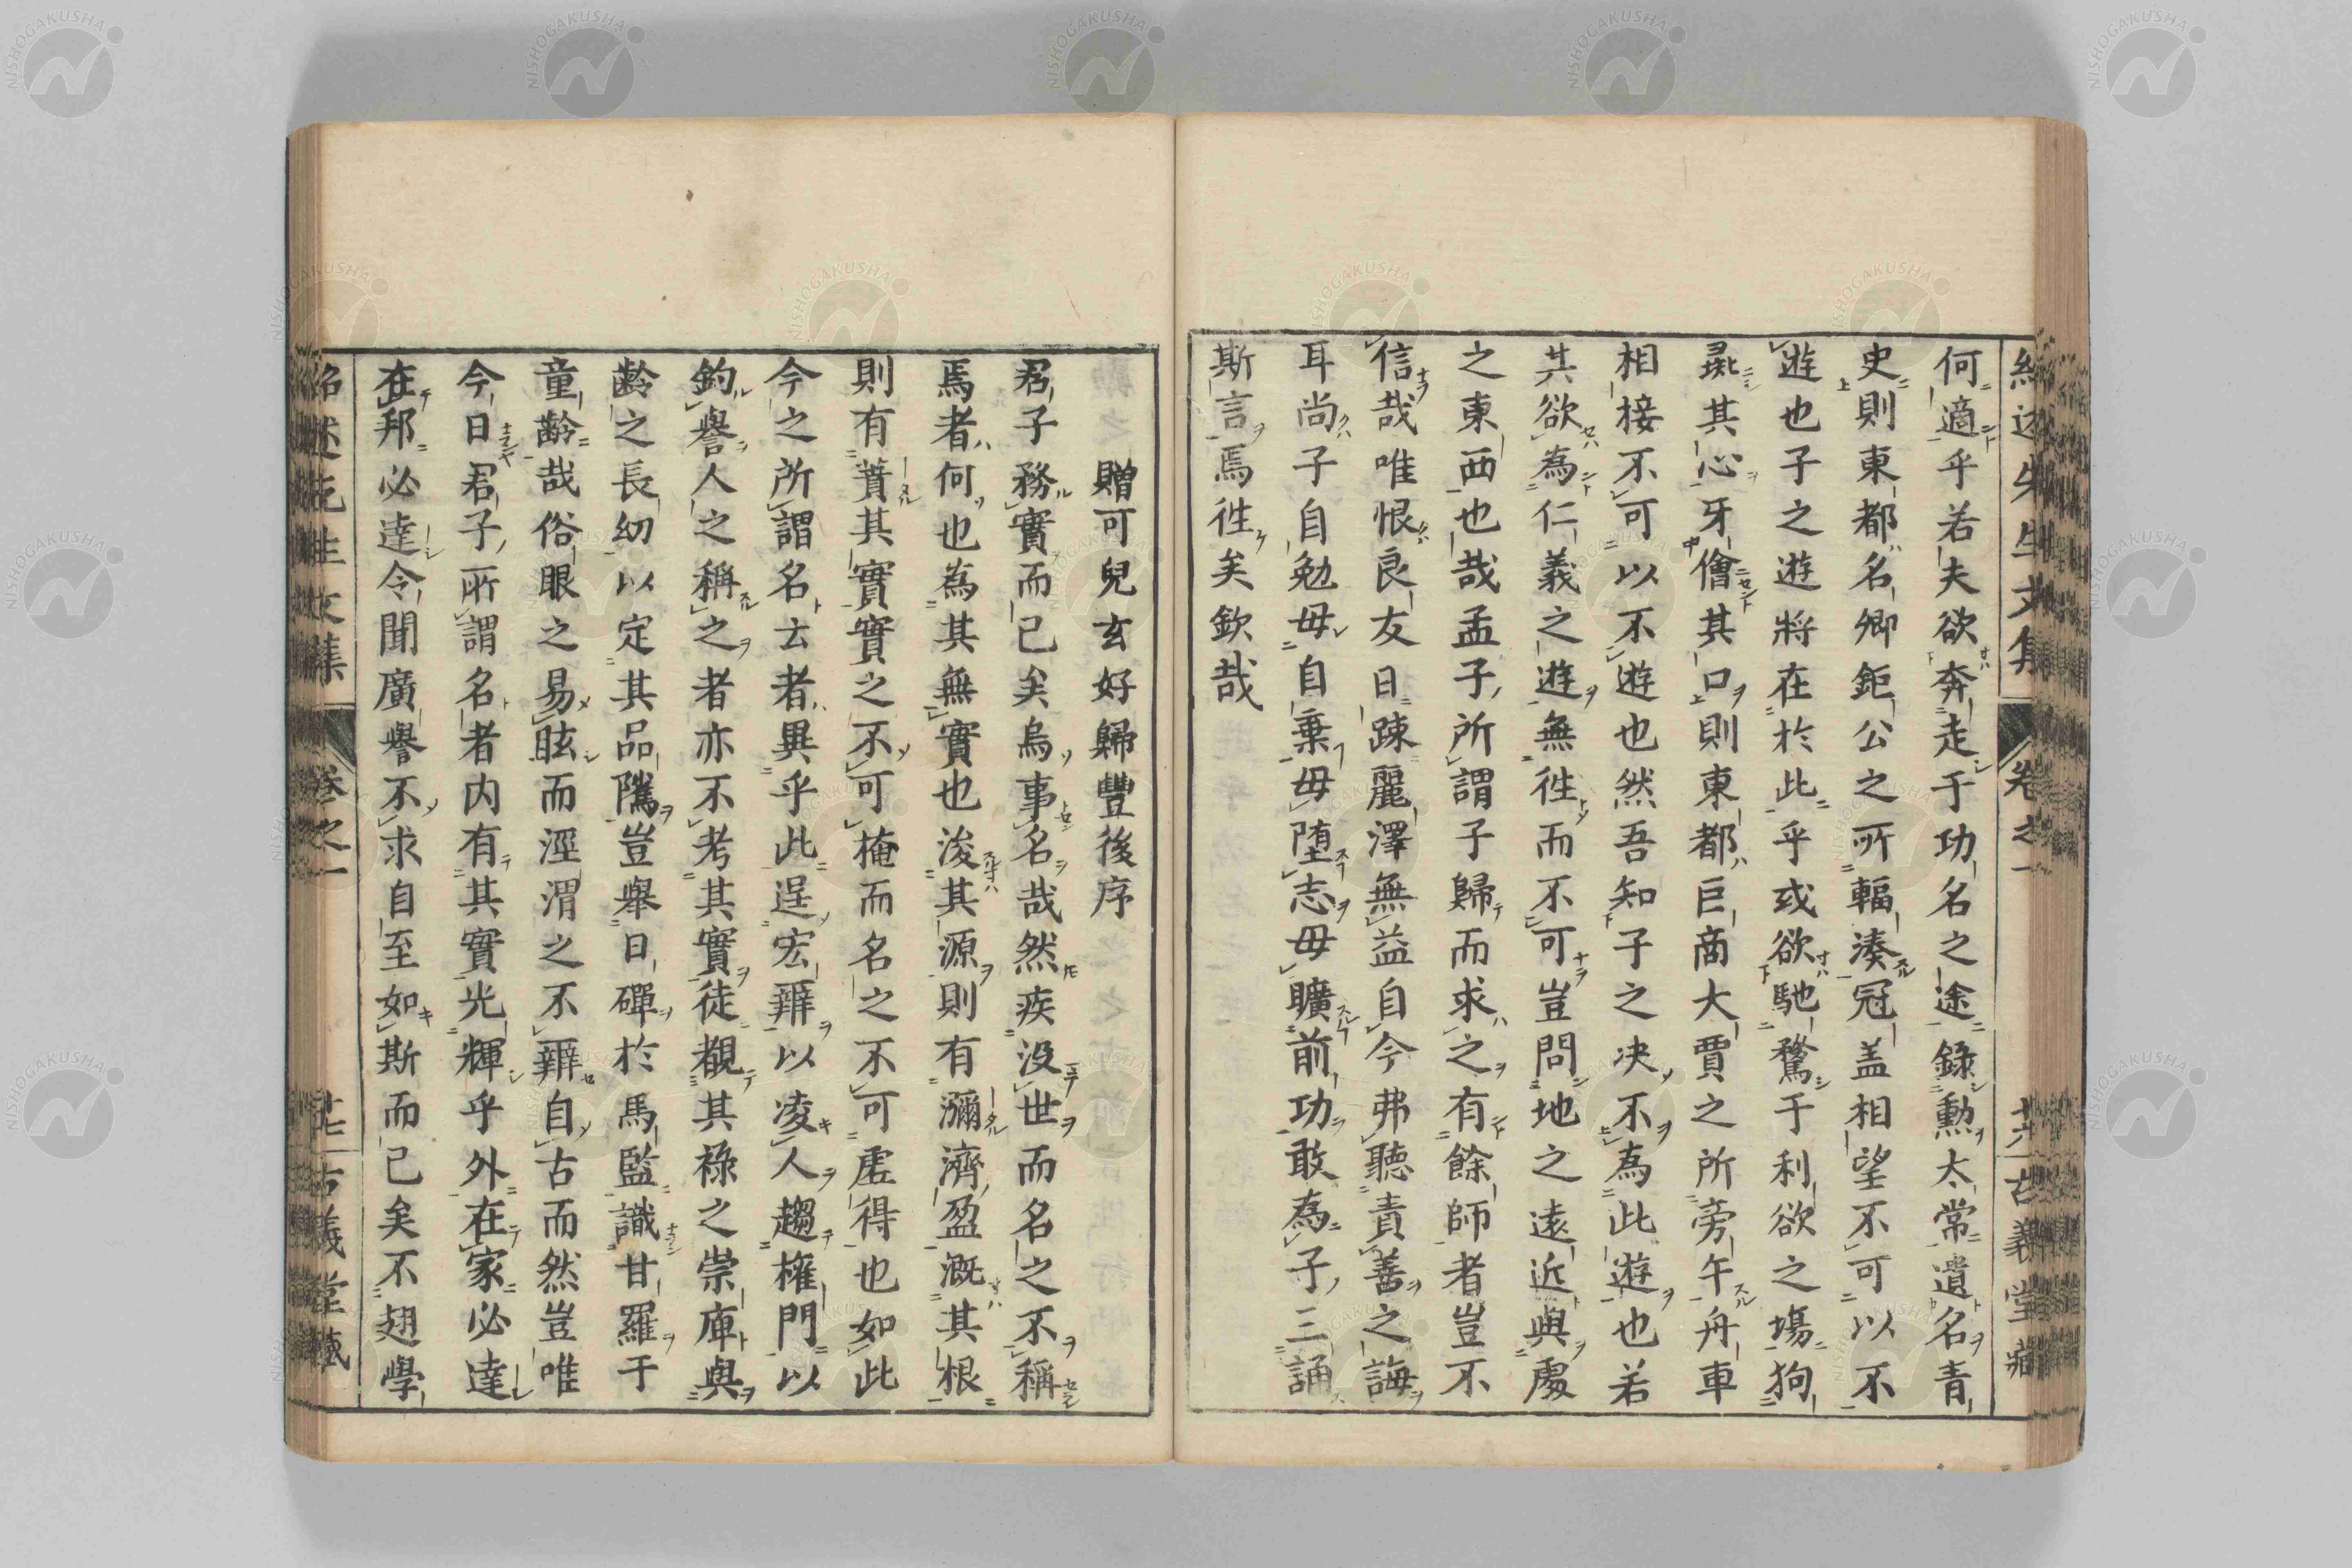 紹述先生文集 卷之一 古義堂藏
何適乎若夫欲奔走于功名之途錄勲太常遺名青
史則東都名卿鉅公之所輻湊冠盖相望不可以不
遊也子之遊將在於此乎或欲馳騖于利欲之塲狗
其心牙儈其口則東都巨商大賈之所旁午舟車
相接不可以不遊也然吾知子之决不為此遊也若
其欲為仁義之遊無徃而不可豈問地之遠近與處
之東西也哉孟子所謂子歸而求之有餘師者豈不
信哉唯恨良友日踈麗澤無益自今弗聽責善之誨
耳尚子自勉毋自棄毋堕志毋曠前功敢為子三誦
斯言焉徃矣欽哉
贈可兒玄好歸豐後序
君子務實而已矣烏事名哉然疾沒世而名之不稱
焉者何也為其無實也浚其源則有瀰濟盈溉其根
則有蕡其實實之不可掩而名之不可虛得也如此
今之所謂名云者異乎此逞宏辯以凌人趨權門以
釣譽人之稱之者亦不考其實徒覩其祿之崇庳與
齡之長幼以定其品隲豈舉日磾於馬監識甘羅于
童齡哉俗眼之易眩而涇渭之不辯自古而然豈唯
今日君子所謂名者内有其實光輝乎外在家必達
在邦必達令聞廣譽不求自至如斯而已矣不翅學
紹述先生文集 卷之一 廿七 古義堂藏